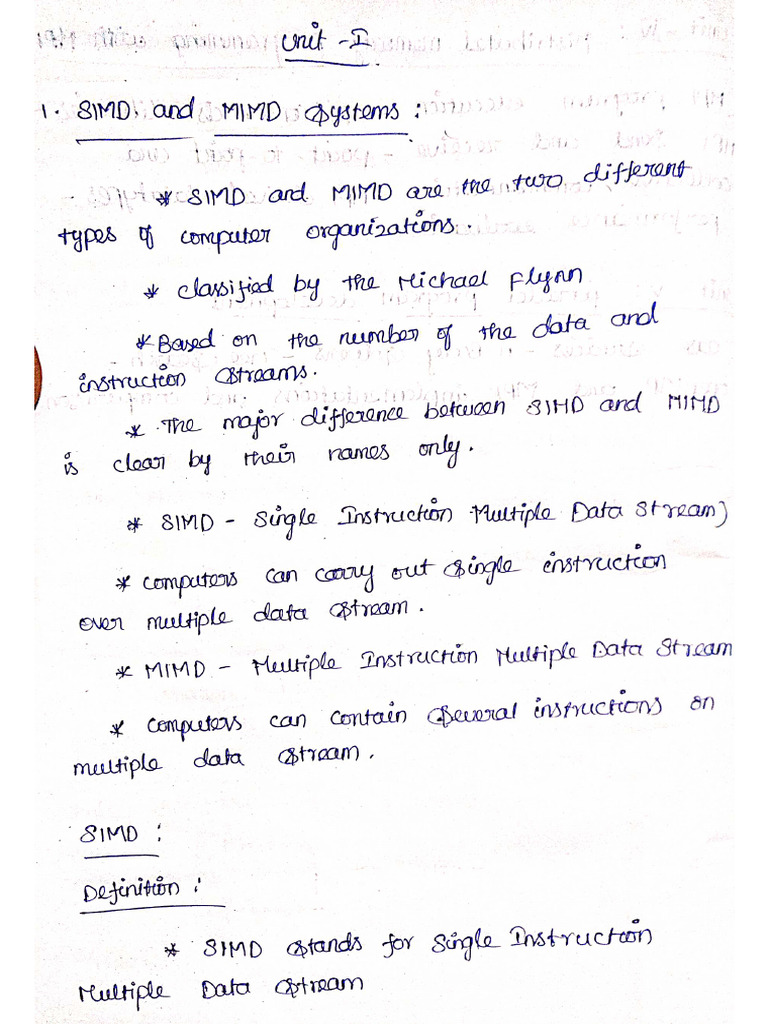 Unit - I
1. SIMD and MIMD Systems :
* SIMD and MIMD are the two different
types of computer organizations.
* classified by the Michael Flynn
* Based on the number of the data and
instruction Streams.
* The major difference between SIMD and MIMD
is clear by their names only.
* SIMD - Single Instruction Multiple Data Stream)
* computers can carry out single instruction
over multiple data Stream.
* MIMD - Multiple Instruction Multiple Data Stream
* computers can contain Several instructions on
multiple data Stream.
SIMD :
Definition :
* SIMD Stands for Single Instruction
Multiple Data Stream